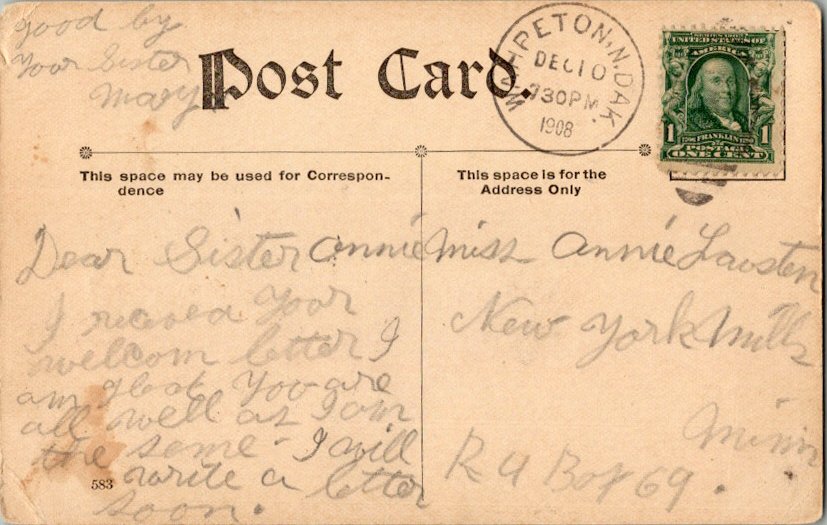 good by
Your Sister
Mary
Post Card.
WAHPETON, N. DAK.
DEC 10
730 PM
1908
UNITED STATES OF
AMERICA
1 FRANKLIN 1
POSTAGE
ONE CENT
This space may be used for Correspon-
dence
This space is for the
Address Only
Dear Sister Annie
I receved Your
welcom letter I
am glad You are
all well as I am
the same - I will
write a letter
soon.
583
Miss Annie
New York Mills
Minn
R 4 Box 69.